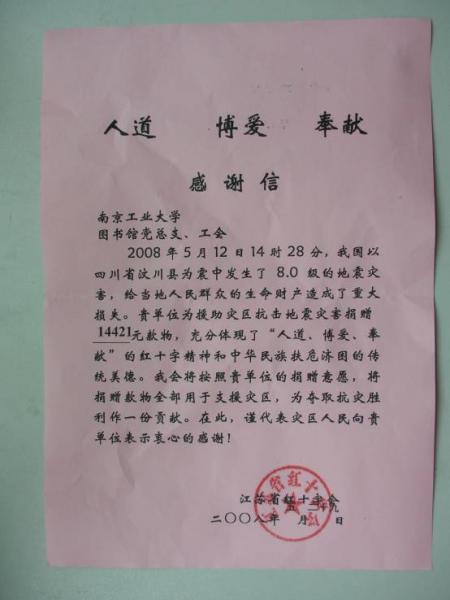 人道 博爱 奉献
感谢信
南京工业大学
图书馆党总支、工会
2008年5月12日14时28分，我国以
四川省汶川县为震中发生了8.0级的地震灾
害，给当地人民群众的生命财产造成了重大
损失。贵单位为援助灾区抗击地震灾害捐赠
14421元款物，充分体现了“人道、博爱、奉
献”的红十字精神和中华民族扶危济困的传
统美德。我会将按照贵单位的捐赠意愿，将
捐赠款物全部用于支援灾区，为夺取抗灾胜
利作一份贡献。在此，谨代表灾区人民向贵
单位表示衷心的感谢！
江苏省红十字会
二〇〇八年 月 日